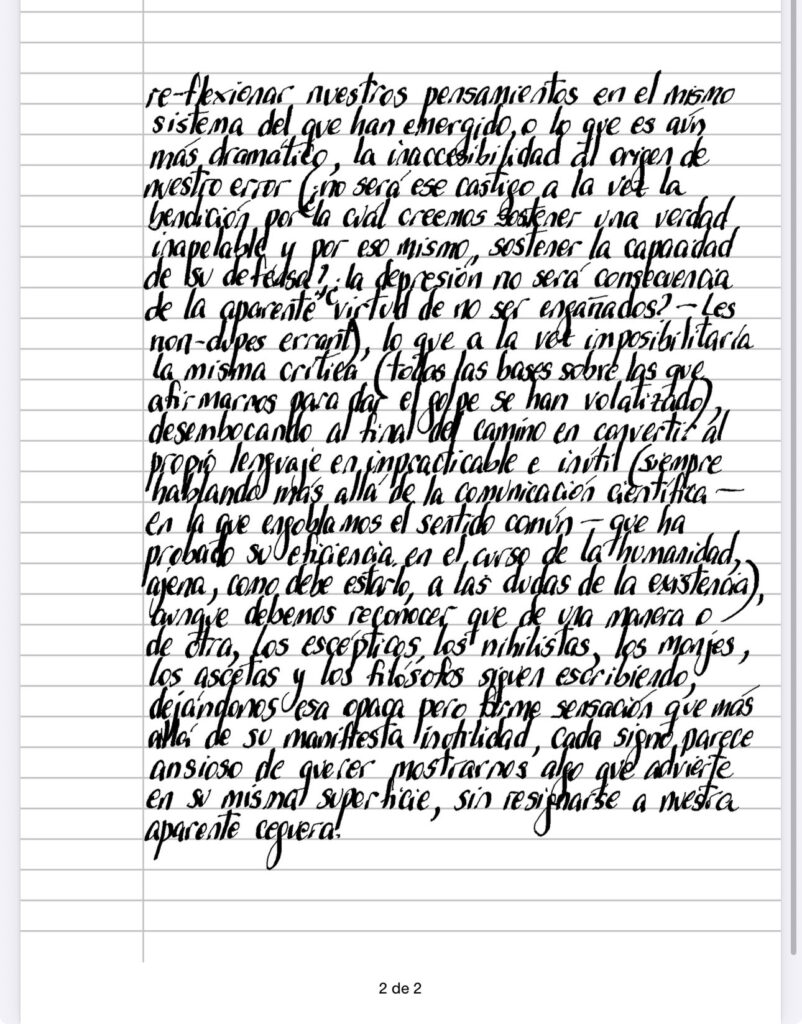 re-flexionar nuestros pensamientos en el mismo
sistema del que han emergido, o lo que es aún
más dramático, la inaccesibilidad al origen de
nuestro error (¿no será ese castigo a la vez la
bendición por la cual creemos sostener una verdad
inapelable y por eso mismo, sostener la capacidad
de su defensa?, ¿la depresión no será consecuencia
de la aparente virtud de no ser engañados? — Les
non-dupes errant), lo que a la vez imposibilitaría
la misma crítica (todas las bases sobre las que
afirmarnos para dar el golpe se han volatizado),
desembocando al final del camino en convertir al
propio lenguaje en impracticable e inútil (siempre
hablando más allá de la comunicación científica —
en la que engoblamos el sentido común — que ha
probado su eficiencia en el curso de la humanidad,
ajena, como debe estarlo, a las dudas de la existencia),
aunque debemos reconocer que de una manera o
de otra, los escépticos, los nihilistas, los monjes,
los ascetas y los filósofos siguen escribiendo,
dejándonos esa opaca pero firme sensación que más
allá de su manifiesta inutilidad, cada signo parece
ansioso de querer mostrarnos algo que advierte
en su misma superficie, sin resignarse a nuestra
aparente ceguera.
2 de 2